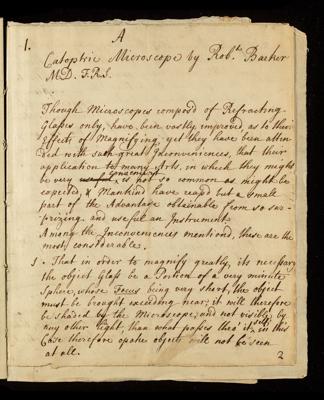 1.
A
Catoptric Microscope by Robt. Barker
M.D. F.R.S.
Though Microscopes compos'd of Refracting-
Glasses only, have been vastly improved, as to their
Effects of Magnifying, yet they have been atten-
ded with such great Inconveniences, that their
application to many Arts, in which they might
be very convenient, is not so common as might be
expected, & Mankind have reap'd but a small
part of the Advantage obtainable from so sur-
prizing and useful an Instrument.
Among the Inconveniences mention'd, these are the
most considerable.
1. That in order to magnify greatly, its necessary
the object Glass be a Portion of a very minute
Sphere, whose Focus being very short, the object
must be brought exceeding near; it will therefore
be shaded by the Microscope, and not visible by
any other light, than what passes thro' itself; in this
Case therefore opake objects will not be seen
at all.
2